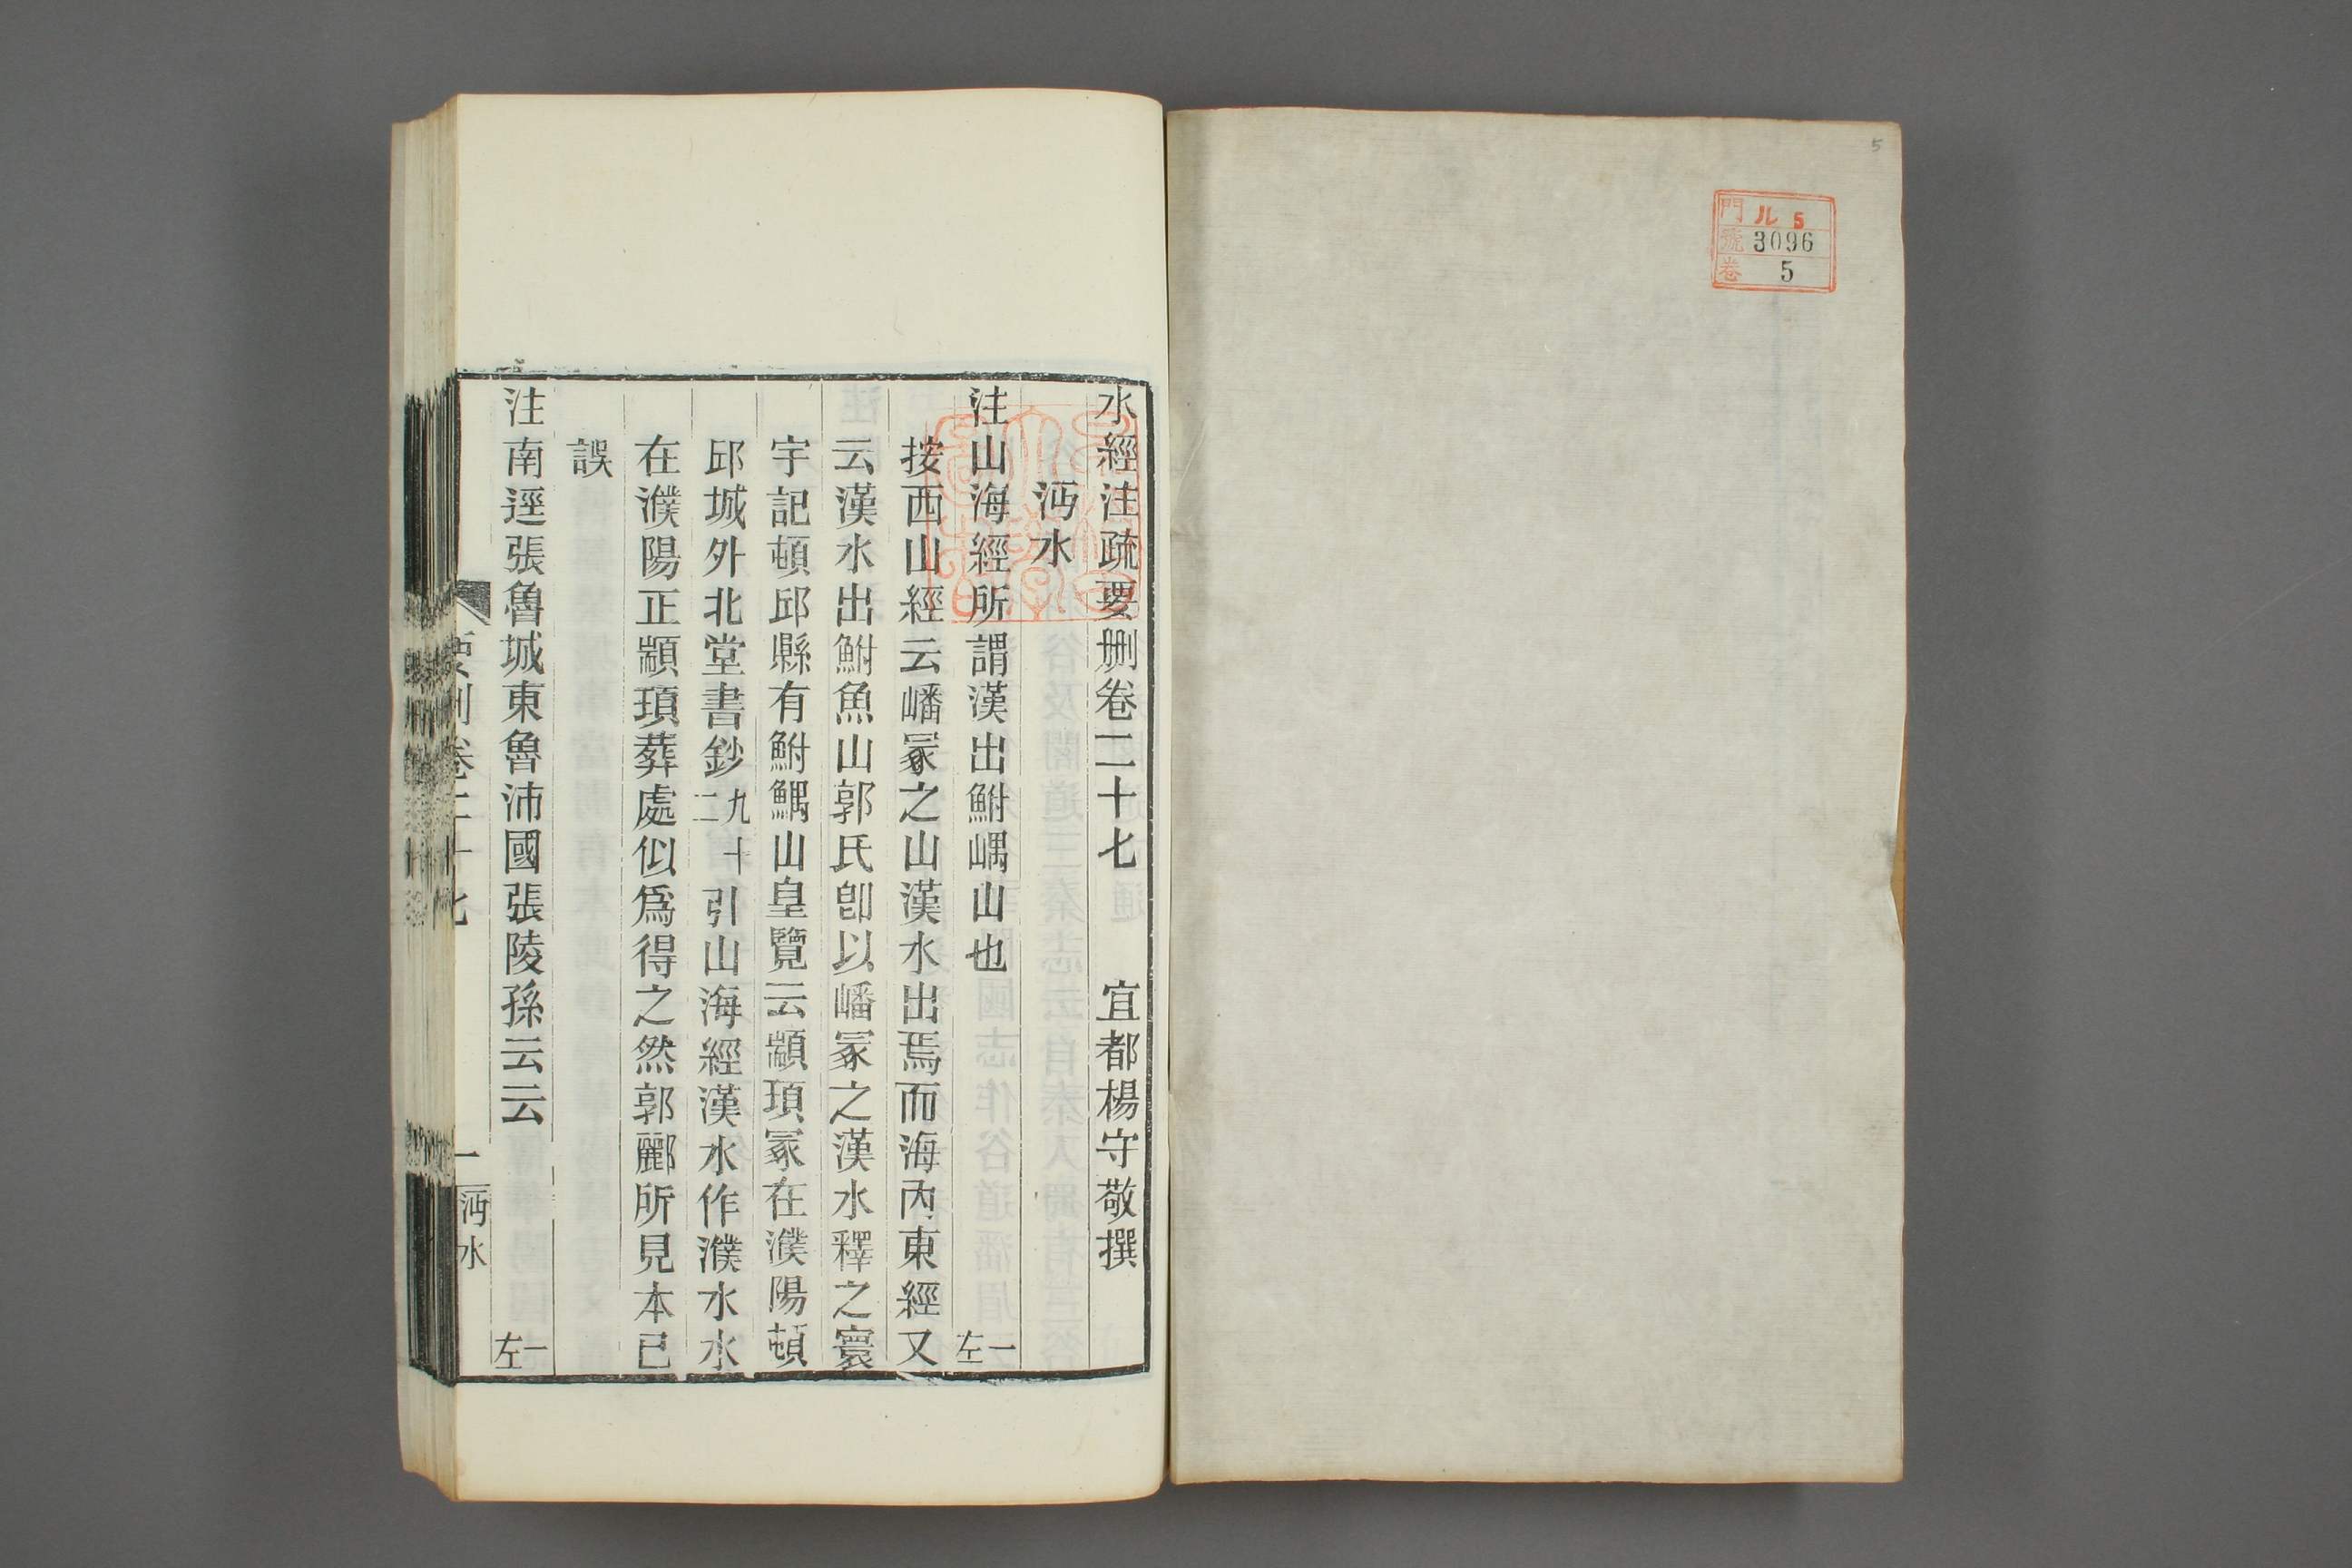 5
門 ル 5
號 3096
卷 5
水經注疏要刪卷二十七 宜都楊守敬撰
沔水
注山海經所謂漢出鮒嵎山也 一左
按西山經云嶓冢之山漢水出焉而海內東經又
云漢水出鮒魚山郭氏卽以嶓冢之漢水釋之寰
宇記頓邱縣有鮒鰅山皇覽云顓頊冢在濮陽頓
邱城外北堂書鈔九十二引山海經漢水作濮水水
在濮陽正顓頊葬處似爲得之然郭酈所見本已
誤
注南逕張魯城東魯沛國張陵孫云云 一左
要刪卷二十七 一 沔水